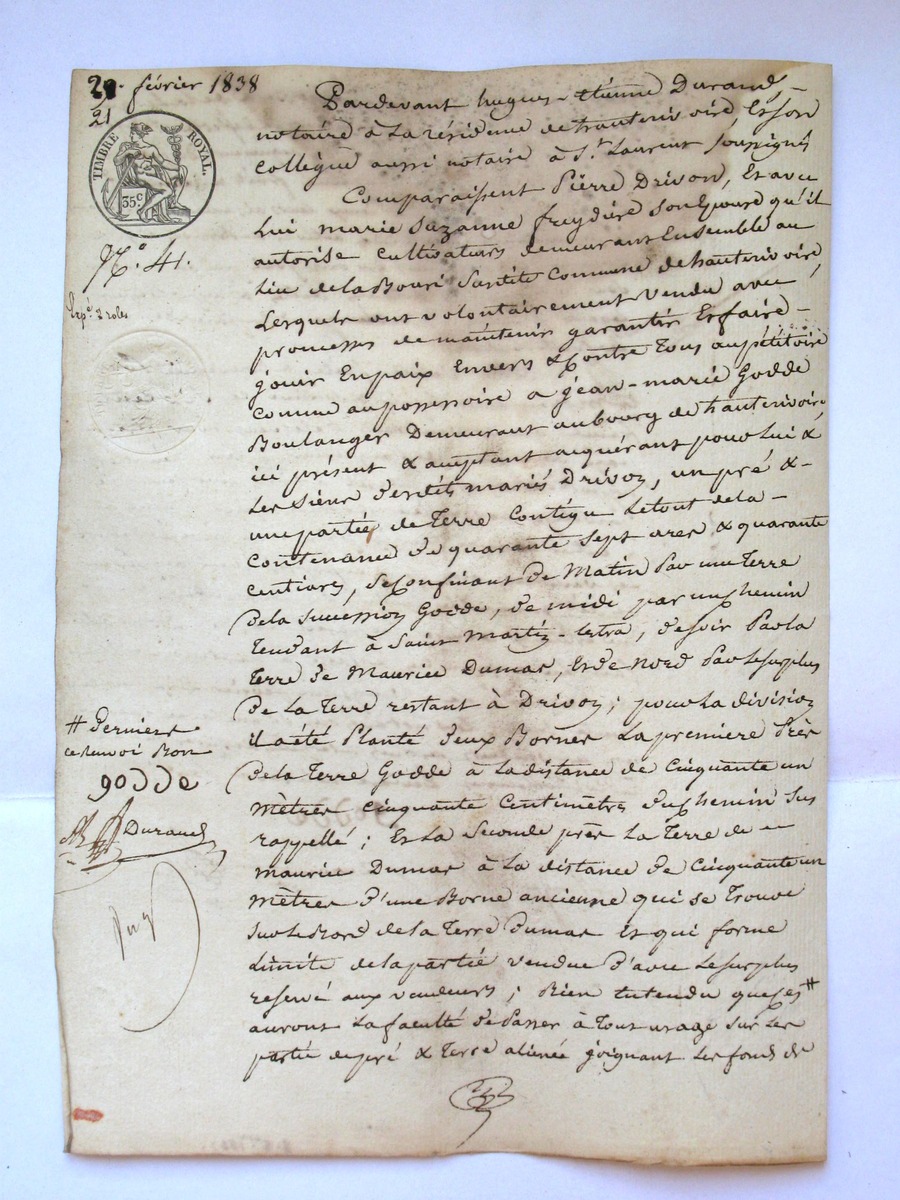 21. février 1838
21
TIMBRE ROYAL.
35 c
N.° 41.
Exp.é 2 roles
Pardevant hugues-étienne Durand,
notaire à La résidence de hauterivoire, Et son
collègue aussi notaire à S.t Laurent soussignés
Comparaissent Pierre Drivon, Et avec
Lui marie Suzanne freydière son Epouse qu'il
autorise cultivateurs demeurant Ensemble au
Lieu de la Bouri susdite Commune de hauterivoire,
Lesquels ont volontairement vendu avec
promesses de maintenir garantir Et faire
jouir En paix Envers & Contre Tous au pétitoire
comme au possessoire a jean-marie Godde
Boulanger Demeurant au bourg de hauterivoire
ici présent & acceptant acquérant pour Lui &
Les siens desdits mariés Drivon, un pré &
une partie de Terre Contigu Le tout de la
Contenance de quarante sept ares & quarante
centiares, se Confinant de Matin Par une Terre
de la succession Godde, de midi par un chemin
Tendant à Saint Martin-Lestra, de soir Par la
Terre de Maurice Dumas, Et de Nord Par Le surplus
De La Terre restant à Drivon; pour La division
il a été Planté deux Bornes La premiere Près
de la Terre Godde à La distance de Cinquante un
mètres cinquante Centimètres du chemin sus
rappellé; Et La Seconde près La Terre de
maurice Dumas à La distance de Cinquante un
mètres d'une Borne ancienne qui se Trouve
sur Le Bord de la Terre Dumas Et qui forme
Limite de la partie vendue d'avec Le surplus
reservé aux vendeurs; Bien Entendu que ses #
auront La faculté de Passer à Tout usage sur Les
partie de pré & Terre aliénée joignant Les fonds de
# derniers
ce renvoi Bon
godde
Durand